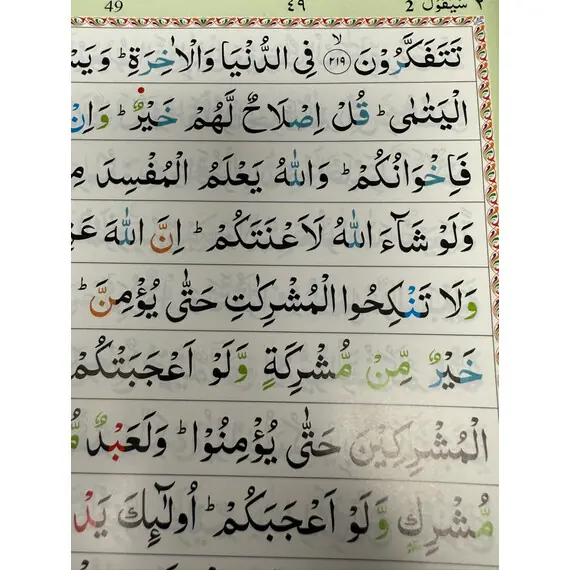 ٢ سَیَقُوۡل 2 ٤٩ 49
تَتَفَكَّرُوۡنَ ﴿۲۱۹﴾ ۙ فِی الدُّنۡیَا وَالۡاٰخِرَةِ ؕ وَیَسۡ
الۡیَتٰمٰی ؕ قُلۡ اِصۡلَاحٌ لَّهُمۡ خَیۡرٌ ؕ وَاِنۡ
فَاِخۡوَانُكُمۡ ؕ وَاللّٰهُ یَعۡلَمُ الۡمُفۡسِدَ مِ
وَلَوۡ شَآءَ اللّٰهُ لَاَعۡنَتَكُمۡ ؕ اِنَّ اللّٰهَ عَ
وَلَا تَنۡكِحُوا الۡمُشۡرِكٰتِ حَتّٰی یُؤۡمِنَّ ؕ
خَیۡرٌ مِّنۡ مُّشۡرِكَةٍ وَّلَوۡ اَعۡجَبَتۡكُمۡ
الۡمُشۡرِكِیۡنَ حَتّٰی یُؤۡمِنُوۡا ؕ وَلَعَبۡدٌ مُّ
مُّشۡرِكٍ وَّلَوۡ اَعۡجَبَكُمۡ ؕ اُولٰٓئِكَ یَدۡ